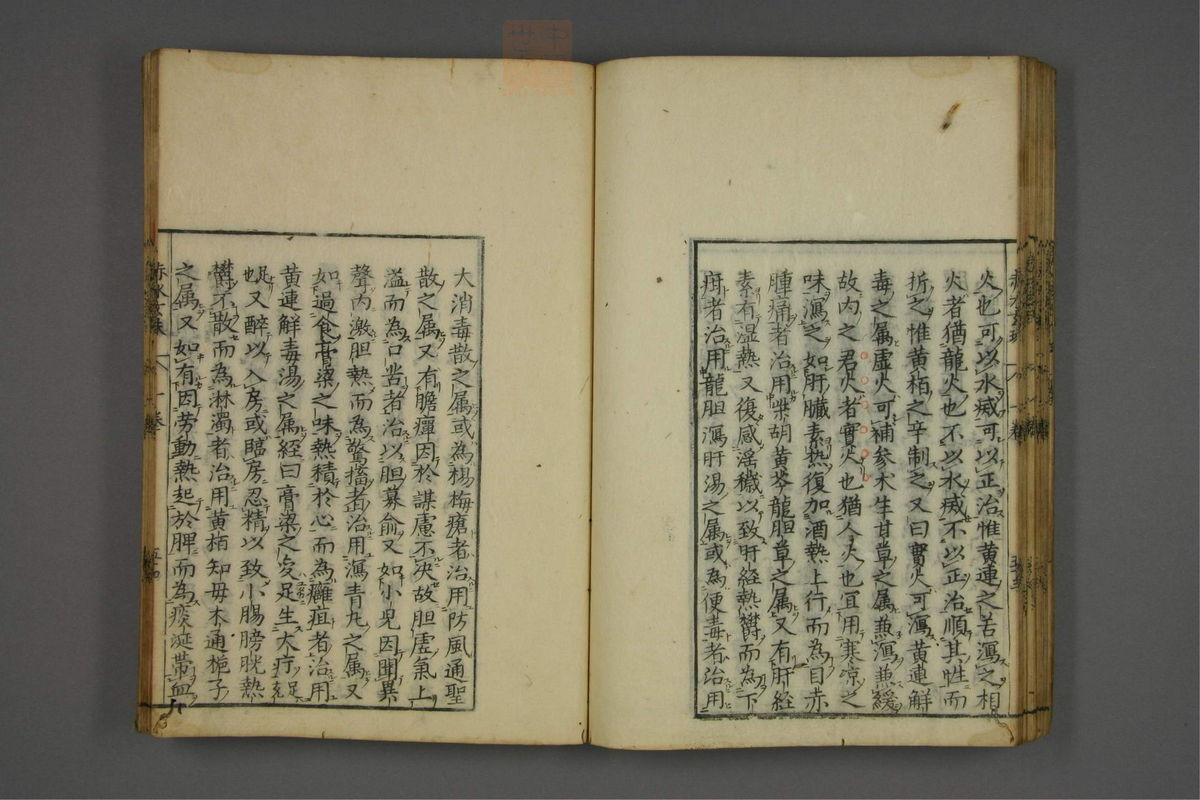 火也可以水滅可以正治惟黄連之苦瀉之相
火者猶龍火也不以水滅不以正治順其性而
折之惟黄栢之辛制之又曰實火可瀉黄連解
毒之属虚火可補参木生甘草之属兼瀉兼緩
故内之君火者實火也猶人火也宜用寒凉之
味瀉之如肝臓素熱復加酒熱上行而為目赤
腫痛者治用柴胡黄芩龍胆草之属又有肝経
素有湿熱又復感淫穢以致肝経熱欝而為下
疳者治用龍胆瀉肝湯之属或為便毒者治用
大消毒散之属或為楊梅瘡者治用防風通聖
散之属又有膽癉因於謀慮不决故胆虚氣上
溢而為口苦者治以胆募俞又如小児因聞異
聲内激胆熱而為驚搐者治用瀉青丸之属又
如過食膏粱之味熱積於心而為癰疽者治用
黄連解毒湯之属経曰膏粱之変足生大疔足
又醉以入房或臨房忍精以致小腸膀胱熱
欝不散而為淋濁者治用黄栢知毋木通梔子
之属又如有因劳動熱起於脾而為痰涎帯血
赤水玄珠 一卷